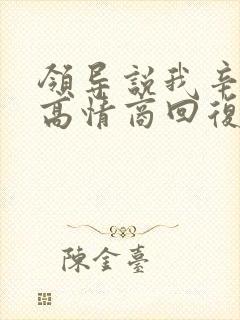 領导説我辛
高情商回復
陳金臺